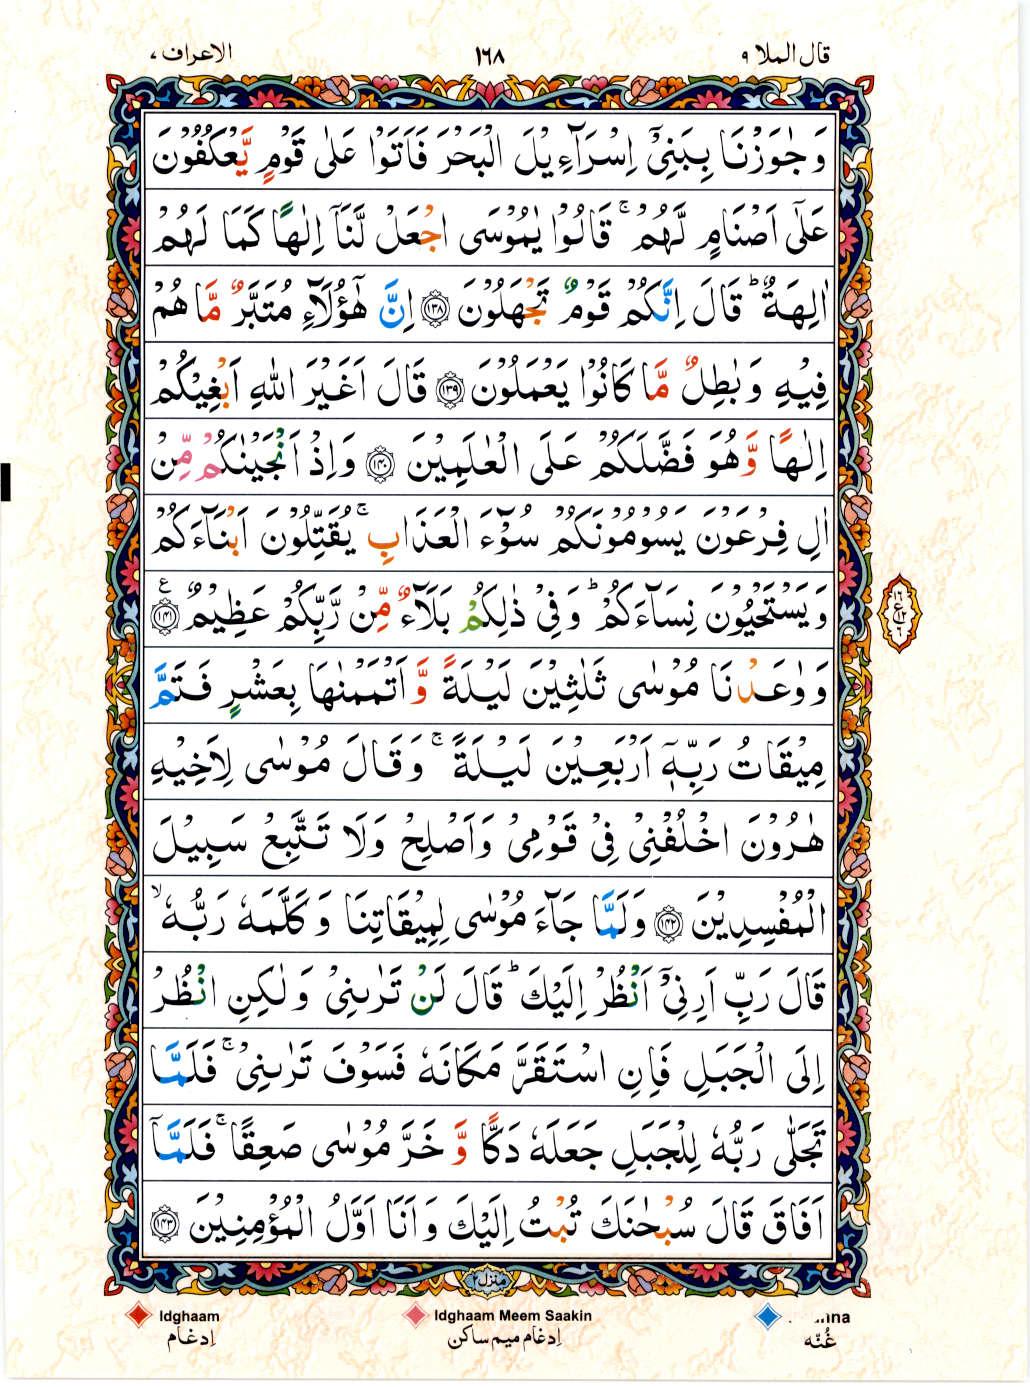 قال الملا ٩ ١٦٨ الاعراف ٧
وَجٰوَزْنَا بِبَنِیْۤ اِسْرَآءِیْلَ الْبَحْرَ فَاَتَوْا عَلٰی قَوْمٍ یَّعْكُفُوْنَ
عَلٰۤی اَصْنَامٍ لَّهُمْ ۚ قَالُوْا یٰمُوْسَی اجْعَلْ لَّنَاۤ اِلٰهًا كَمَا لَهُمْ
اٰلِهَةٌ ؕ قَالَ اِنَّكُمْ قَوْمٌ تَجْهَلُوْنَ ﴿۱۳۸﴾ اِنَّ هٰۤؤُلَآءِ مُتَبَّرٌ مَّا هُمْ
فِیْهِ وَبٰطِلٌ مَّا كَانُوْا یَعْمَلُوْنَ ﴿۱۳۹﴾ قَالَ اَغَیْرَ اللّٰهِ اَبْغِیْكُمْ
اِلٰهًا وَّهُوَ فَضَّلَكُمْ عَلَی الْعٰلَمِیْنَ ﴿۱۴۰﴾ وَاِذْ اَنْجَیْنٰكُمْ مِّنْ
اٰلِ فِرْعَوْنَ یَسُوْمُوْنَكُمْ سُوْٓءَ الْعَذَابِ ۚ یُقَتِّلُوْنَ اَبْنَآءَكُمْ
وَیَسْتَحْیُوْنَ نِسَآءَكُمْ ؕ وَفِیْ ذٰلِكُمْ بَلَآءٌ مِّنْ رَّبِّكُمْ عَظِیْمٌ ﴿۱۴۱﴾ ع
وَوٰعَدْنَا مُوْسٰی ثَلٰثِیْنَ لَیْلَةً وَّاَتْمَمْنٰهَا بِعَشْرٍ فَتَمَّ
مِیْقَاتُ رَبِّهٖۤ اَرْبَعِیْنَ لَیْلَةً ۚ وَقَالَ مُوْسٰی لِاَخِیْهِ
هٰرُوْنَ اخْلُفْنِیْ فِیْ قَوْمِیْ وَاَصْلِحْ وَلَا تَتَّبِعْ سَبِیْلَ
الْمُفْسِدِیْنَ ﴿۱۴۲﴾ وَلَمَّا جَآءَ مُوْسٰی لِمِیْقَاتِنَا وَكَلَّمَهٗ رَبُّهٗ ۙ
قَالَ رَبِّ اَرِنِیْۤ اَنْظُرْ اِلَیْكَ ؕ قَالَ لَنْ تَرٰىنِیْ وَلٰكِنِ انْظُرْ
اِلَی الْجَبَلِ فَاِنِ اسْتَقَرَّ مَكَانَهٗ فَسَوْفَ تَرٰىنِیْ ۚ فَلَمَّا
تَجَلّٰی رَبُّهٗ لِلْجَبَلِ جَعَلَهٗ دَكًّا وَّخَرَّ مُوْسٰی صَعِقًا ۚ فَلَمَّاۤ
اَفَاقَ قَالَ سُبْحٰنَكَ تُبْتُ اِلَیْكَ وَاَنَا اَوَّلُ الْمُؤْمِنِیْنَ ﴿۱۴۳﴾
منزل ۲
Idghaam Idghaam Meem Saakin
اِدغام اِدغام میم ساکن غُنّه